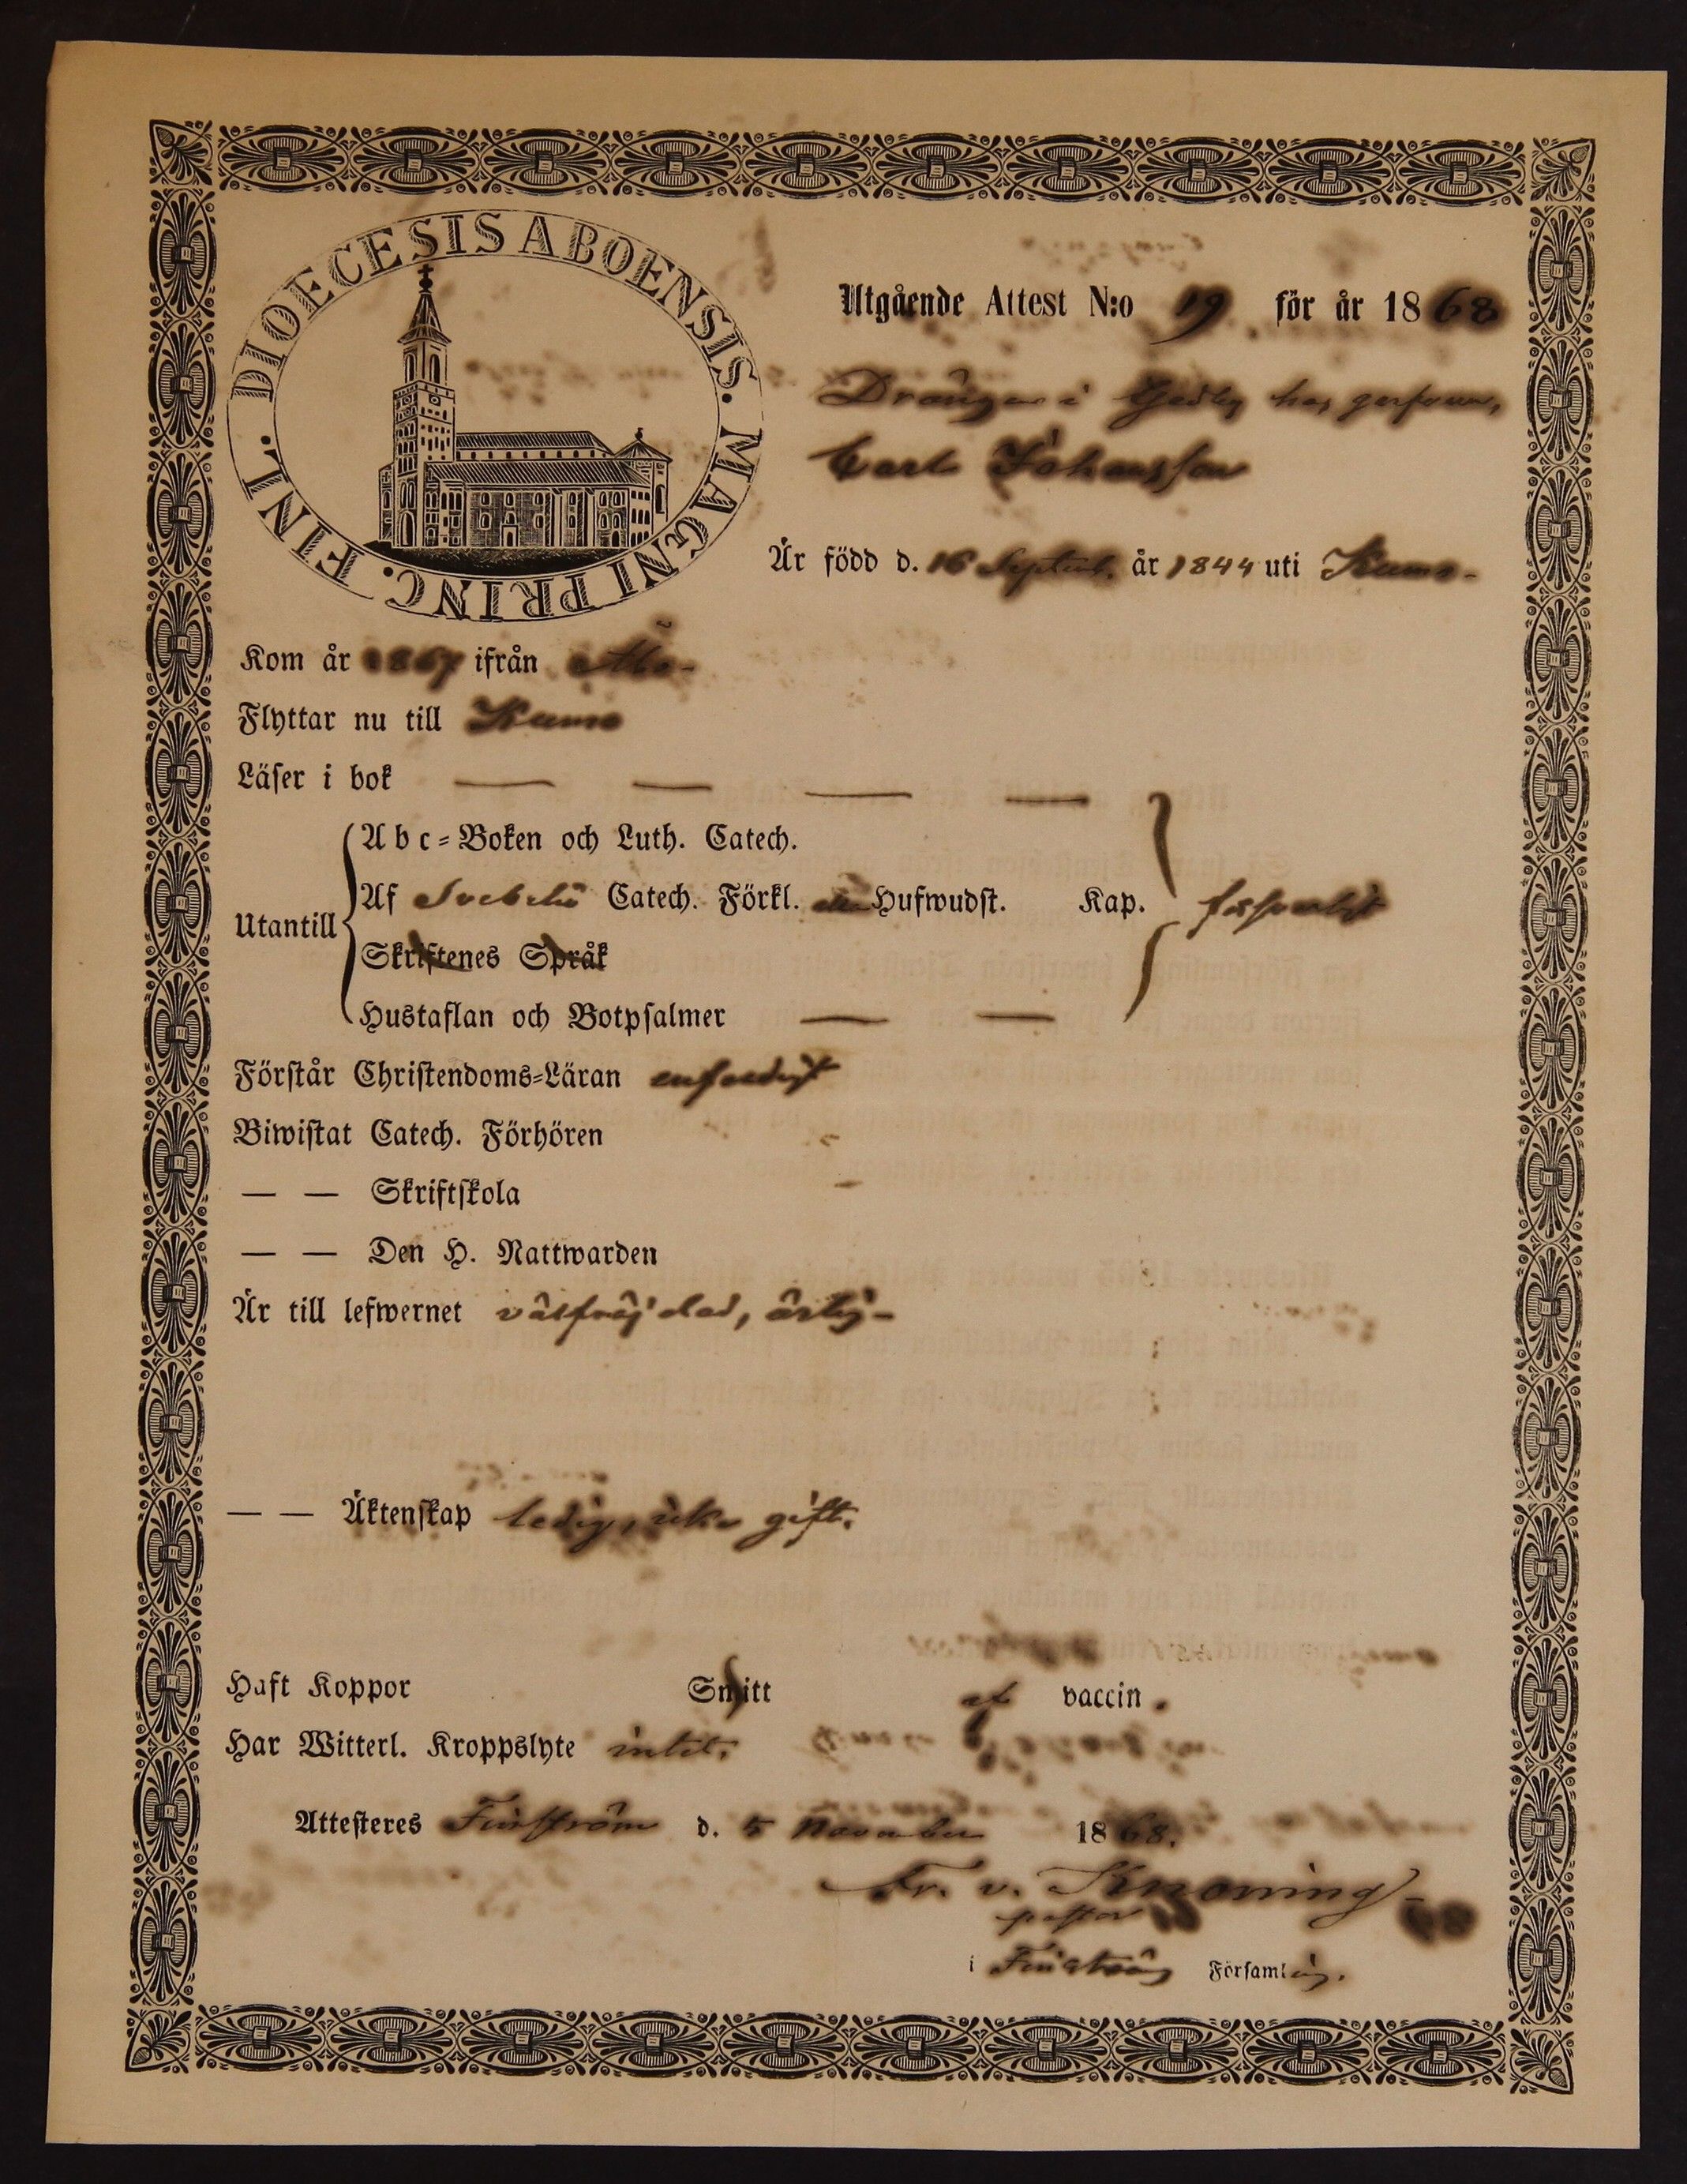 DIOECESIS ABOENSIS. MAGNI PRINC. FINL.
Utgående Attest N:o 19 för år 1868
Drängen i
Carl Johansson
Är född d. 16 Septemb. år 1844 uti Kumo-
Kom år 1867 ifrån Åbo-
Flyttar nu till Kumo
Läser i bok — — — —
Utantill
Abc-Boken och Luth. Catech.
Af Svebelii Catech. Förkl. Hufwudst. Kap. försvarligt
Skriftenes Språk
Hustaflan och Botpsalmer — —
Förstår Christendoms-Läran enfaldigt
Biwistat Catech. Förhören
— — Skriftskola
— — Den H. Nattwarden
Är till lefwernet välfräjdad, ärlig-
— — Äktenskap ledig, icke gift.
Haft Koppor Smitt af vaccin.
Har Witterl. Kroppslyte intet.
Attesteres Finström d. 5 November 1868.
Fr. v. Knorring
pastor
i Finström Församling.